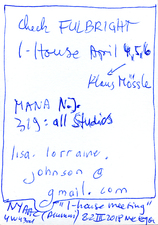 Check FULBRIGHT
I-House April 4,5,6
Klaus Mössle
MANA N.J.
319: all Studios
lisa. lorraine.
johnson @
gmail. com
NYAAC "I-house meeting"
22 III 2018